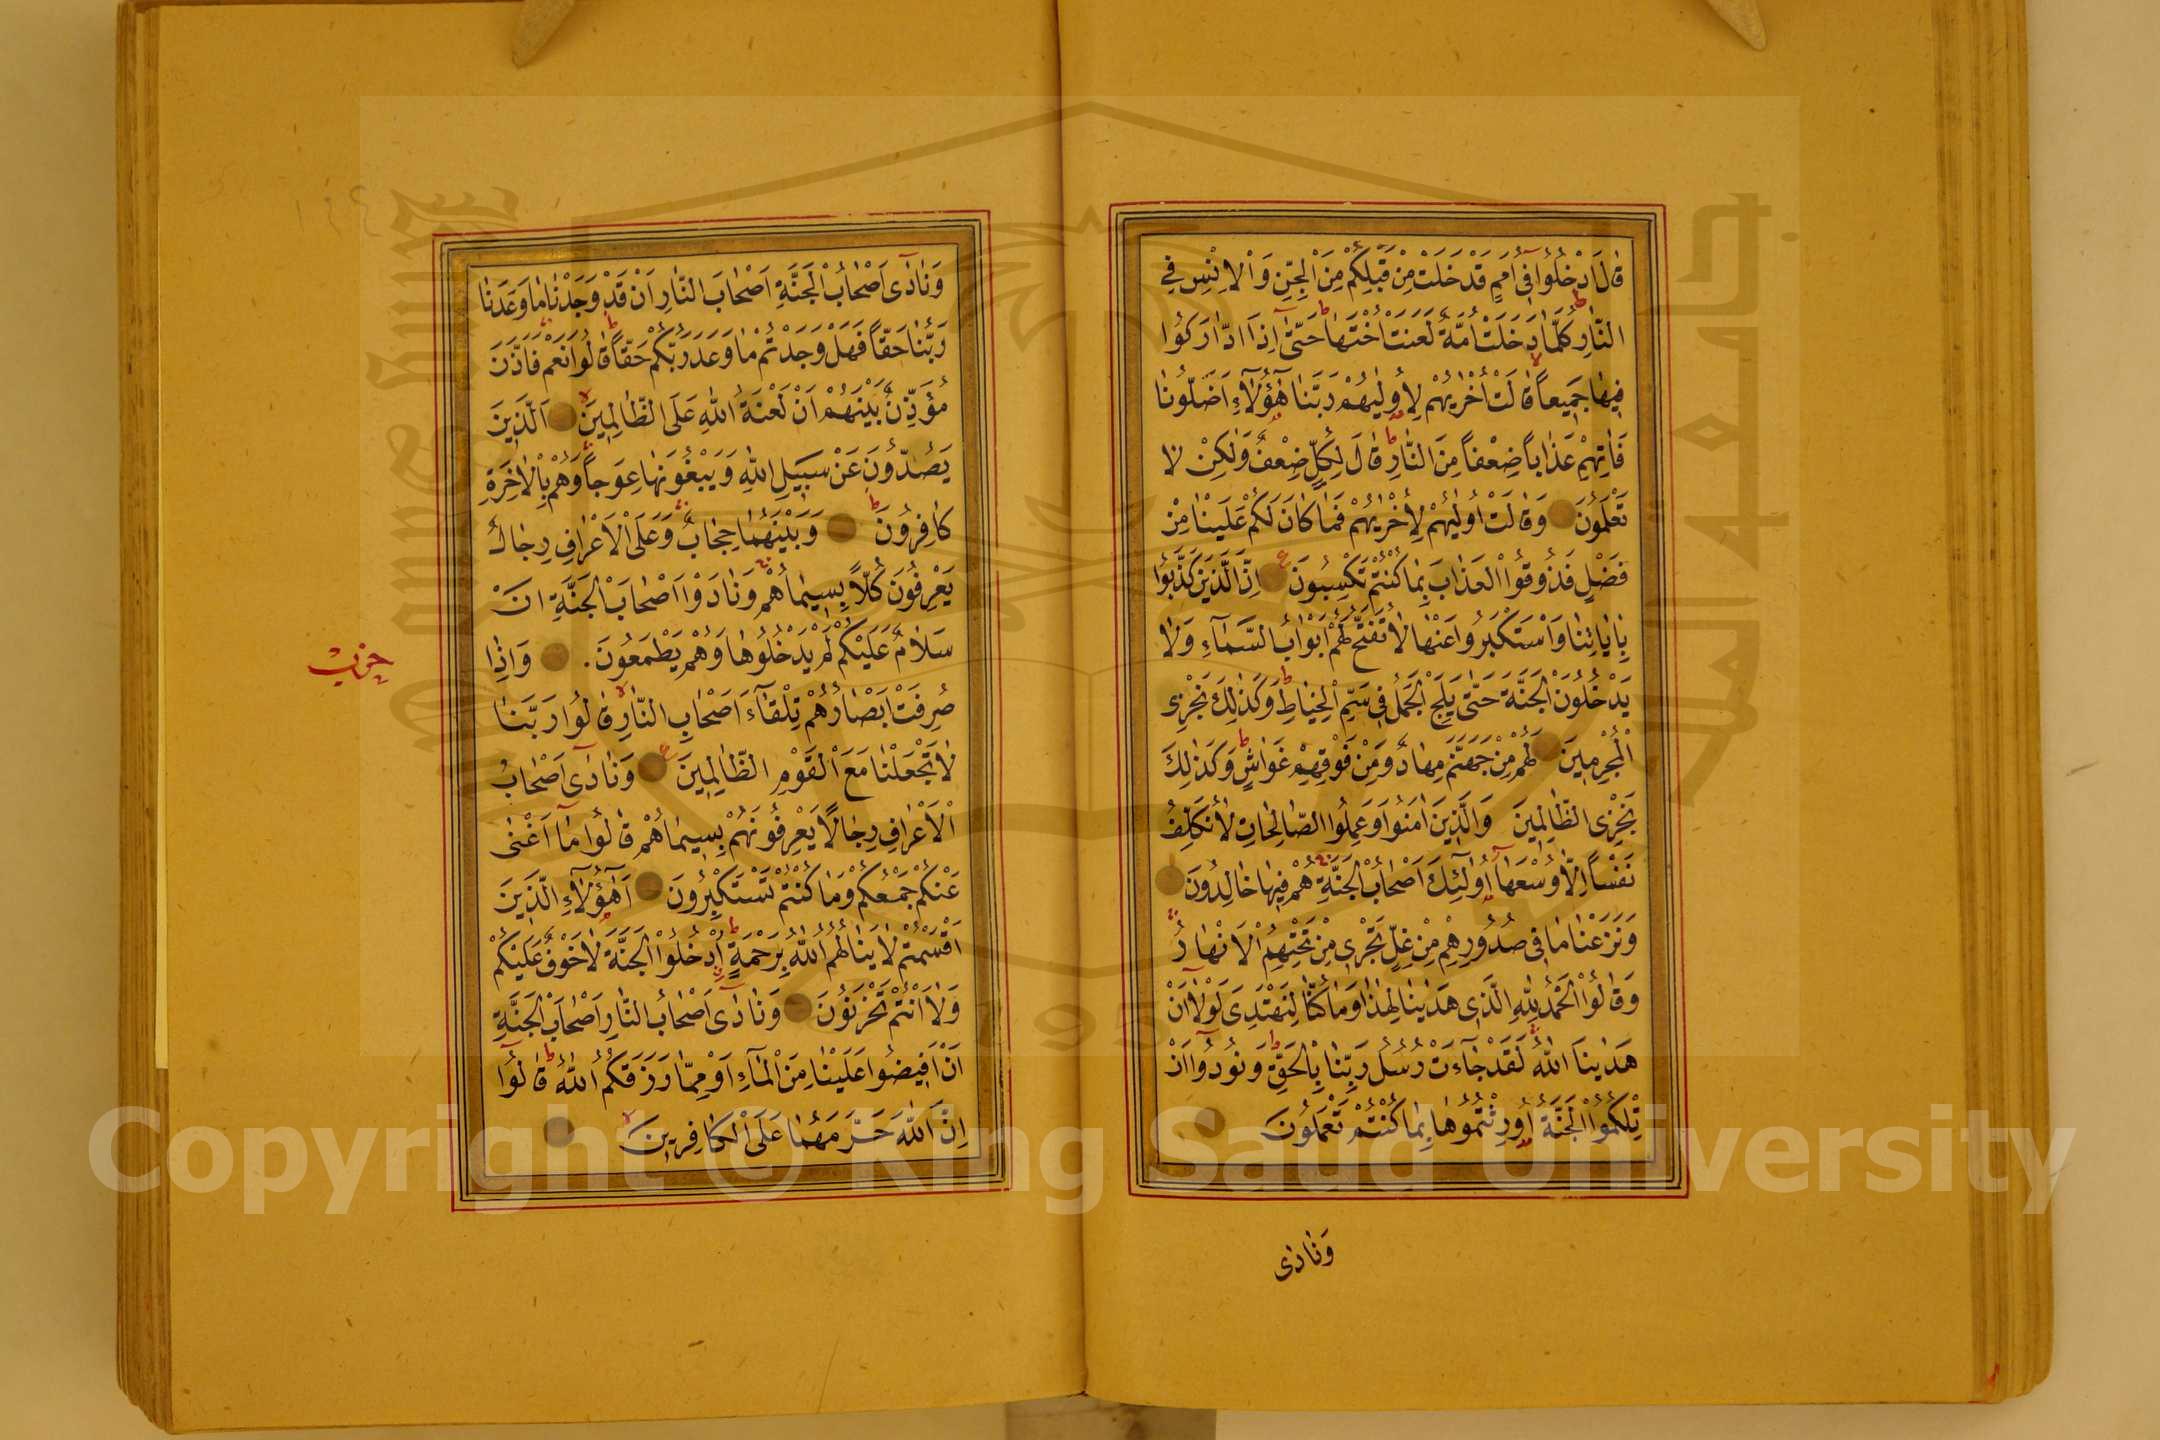 قَالَ ادْخُلُوا فِي أُمَمٍ قَدْ خَلَتْ مِنْ قَبْلِكُمْ مِنَ الْجِنِّ وَالْاِنْسِ فِي
النَّارِ كُلَّمَا دَخَلَتْ أُمَّةٌ لَعَنَتْ أُخْتَهَا حَتَّى إِذَا ادَّارَكُوا
فِيهَا جَمِيعاً قَالَتْ أُخْرٰيهُمْ لِأُولٰيهُمْ رَبَّنَا هٰؤُلَاءِ أَضَلُّونَا
فَاٰتِهِمْ عَذَاباً ضِعْفاً مِنَ النَّارِ قَالَ لِكُلٍّ ضِعْفٌ وَلٰكِنْ لَا
تَعْلَمُونَ وَقَالَتْ اُولٰيهُمْ لِأُخْرٰيهُمْ فَمَا كَانَ لَكُمْ عَلَيْنَا مِنْ
فَضْلٍ فَذُوقُوا الْعَذَابَ بِمَا كُنْتُمْ تَكْسِبُونَ اِنَّ الَّذِينَ كَذَّبُوا
بِاٰيَاتِنَا وَاسْتَكْبَرُوا عَنْهَا لَا تُفَتَّحُ لَهُمْ اَبْوَابُ السَّمَاءِ وَلَا
يَدْخُلُونَ الْجَنَّةَ حَتَّى يَلِجَ الْجَمَلُ فِي سَمِّ الْخِيَاطِ وَكَذٰلِكَ نَجْزِي
الْمُجْرِمِينَ لَهُمْ مِنْ جَهَنَّمَ مِهَادٌ وَمِنْ فَوْقِهِمْ غَوَاشٍ وَكَذٰلِكَ
نَجْزِي الظَّالِمِينَ وَالَّذِينَ اٰمَنُوا وَعَمِلُوا الصَّالِحَاتِ لَا نُكَلِّفُ
نَفْساً اِلَّا وُسْعَهَا اُولٰئِكَ اَصْحَابُ الْجَنَّةِ هُمْ فِيهَا خَالِدُونَ
وَنَزَعْنَا مَا فِي صُدُورِهِمْ مِنْ غِلٍّ تَجْرِي مِنْ تَحْتِهِمُ الْاَنْهَارُ
وَقَالُوا الْحَمْدُ لِلّٰهِ الَّذِي هَدٰينَا لِهٰذَا وَمَا كُنَّا لِنَهْتَدِيَ لَوْلَا اَنْ
هَدٰينَا اللّٰهُ لَقَدْ جَاءَتْ رُسُلُ رَبِّنَا بِالْحَقِّ وَنُودُوا اَنْ
تِلْكُمُ الْجَنَّةُ اُورِثْتُمُوهَا بِمَا كُنْتُمْ تَعْمَلُونَ
وَنَادٰى
وَنَادٰى اَصْحَابُ الْجَنَّةِ اَصْحَابَ النَّارِ اَنْ قَدْ وَجَدْنَا مَا وَعَدَنَا
رَبُّنَا حَقّاً فَهَلْ وَجَدْتُمْ مَا وَعَدَ رَبُّكُمْ حَقّاً قَالُوا نَعَمْ فَاَذَّنَ
مُؤَذِّنٌ بَيْنَهُمْ اَنْ لَعْنَةُ اللّٰهِ عَلَى الظَّالِمِينَ اَلَّذِينَ
يَصُدُّونَ عَنْ سَبِيلِ اللّٰهِ وَيَبْغُونَهَا عِوَجاً وَهُمْ بِالْاٰخِرَةِ
كَافِرُونَ وَبَيْنَهُمَا حِجَابٌ وَعَلَى الْاَعْرَافِ رِجَالٌ
يَعْرِفُونَ كُلّاً بِسِيمَاهُمْ وَنَادَوْا اَصْحَابَ الْجَنَّةِ اَنْ
سَلَامٌ عَلَيْكُمْ لَمْ يَدْخُلُوهَا وَهُمْ يَطْمَعُونَ وَاِذَا
صُرِفَتْ اَبْصَارُهُمْ تِلْقَاءَ اَصْحَابِ النَّارِ قَالُوا رَبَّنَا
لَا تَجْعَلْنَا مَعَ الْقَوْمِ الظَّالِمِينَ وَنَادٰى اَصْحَابُ
الْاَعْرَافِ رِجَالًا يَعْرِفُونَهُمْ بِسِيمَاهُمْ قَالُوا مَا اَغْنٰى
عَنْكُمْ جَمْعُكُمْ وَمَا كُنْتُمْ تَسْتَكْبِرُونَ اَهٰؤُلَاءِ الَّذِينَ
اَقْسَمْتُمْ لَا يَنَالُهُمُ اللّٰهُ بِرَحْمَةٍ اُدْخُلُوا الْجَنَّةَ لَا خَوْفٌ عَلَيْكُمْ
وَلَا اَنْتُمْ تَحْزَنُونَ وَنَادٰى اَصْحَابُ النَّارِ اَصْحَابَ الْجَنَّةِ
اَنْ اَفِيضُوا عَلَيْنَا مِنَ الْمَاءِ اَوْ مِمَّا رَزَقَكُمُ اللّٰهُ قَالُوا
اِنَّ اللّٰهَ حَرَّمَهُمَا عَلَى الْكَافِرِينَ
حزب
١٤٤
Copyright © King Saud University
King Saud University
جامعة الملك سعود
1957